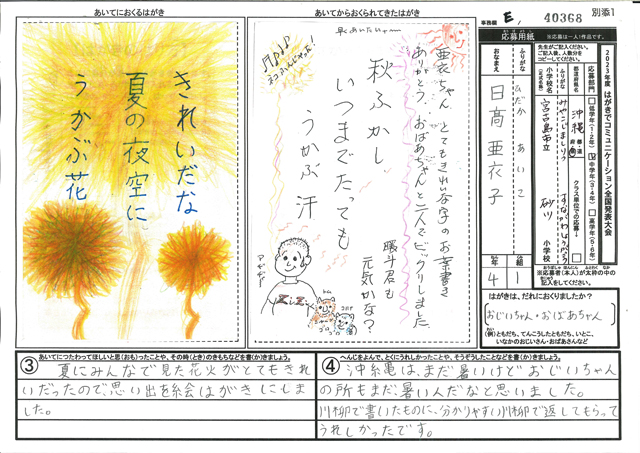 あいてにおくるはがき
きれいだな
夏の夜空に
うかぶ花
あいてからおくられてきたはがき
亜衣ちゃん とてもきれいな字のお葉書き
ありがとう。おばあちゃんと二人でビックリしました。
秋ふかし
いつまでたっても
うかぶ汗
元気かな?
事務欄 E / 40368
別添1
応募用紙
※応募は一人1作品です。
2023年度 はがきでコミュニケーション全国発表大会
先生がご記入ください。
ご記入後、人数分を
コピーしてください。
応募部門
低学年(1・2年)
中学年(3・4年)
高学年(5・6年)
都道府県名
沖縄
クラス単位での応募
ふりがな
小学校名
(正式名称)
宮古島市立
砂川
小学校
ふりがな
おなまえ
ひだか あいこ
日髙 亜衣子
4年
1組
※応募者(本人)が太枠の中の
記入をしてください。
はがきは、だれにおくりましたか?
おじいちゃん・おばあちゃん
(例)ともだち、てんこうしたともだち、いとこ、
いなかのおじいさん・おばあさんなど
③ あいてにつたわってほしいと思(おも)ったことや、その時(とき)のきもちなどを書(か)きましょう。
夏にみんなで見た花火がとてもきれ
いだったので、思い出を絵はがきにしま
した。
④ へんじをよんで、とくにうれしかったことや、そうぞうしたことなどを書(か)きましょう。
沖縄は、まだ暑いけどおじいちゃん
の所もまだ、暑いんだなと思いました。
川柳で書いたものに、分かりやすい川柳で返してもらって
うれしかったです。